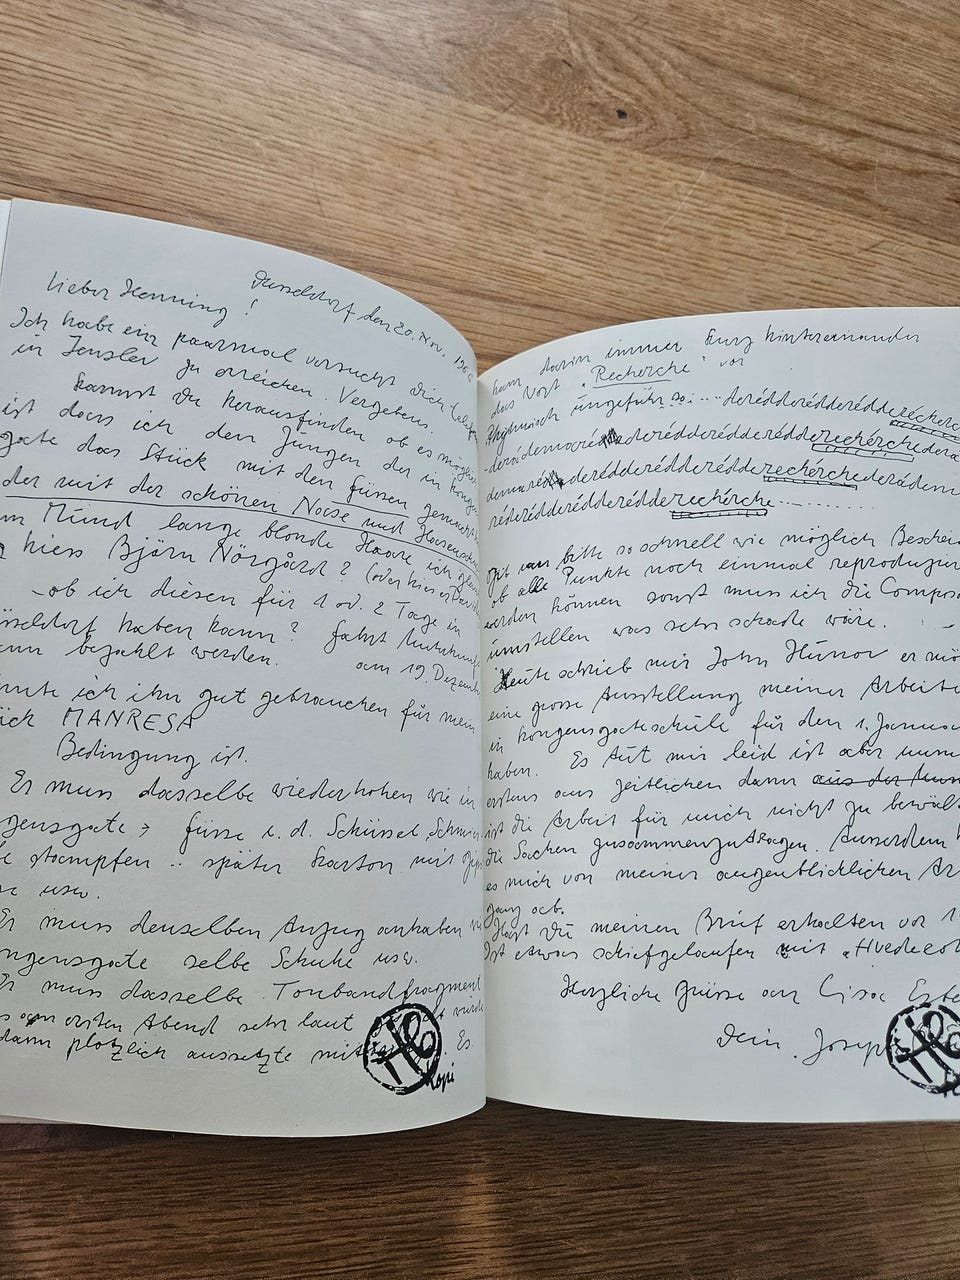 Düsseldorf den 20. Nov. 196
Lieber Henning!
Ich habe ein paarmal versucht dich telefon
in Jensler zu erreichen. Vergebens.
kannst du herausfinden ob es möglich
ist dass ich den Jungen der in kong
gate das Stück mit den füssen gemacht
der mit der schönen Nase und Hasensch
m Mund lange blonde Haare ich glau
hiess Björn Nörgård? (oder hies er
– ob ich diesen für 1 od. 2 Tage in
sseldorf haben kann? fahrt
nn bezahlt werden. am 19. Dezem
nnte ich ihn gut gebrauchen für mein
ück MANRESA
Bedingung ist.
Er muss dasselbe wiederhohlen wie in
gensgate → füsse i. d. Schüssel
stampfen .. später karton mit
usw.
Er muss denselben Anzug anhaben
ngensgate selbe Schuhe usw.
Er muss dasselbe Tonbandfragment
am ersten Abend sehr laut
dann plötzlich aussetzte mit Es
Kopi
kam darin immer kurz hintereinander
das Wort „Recherche" vor
Rhythmisch ungefähr so:.... derédderédderédderécherc
-derádemocré derédderédderédderecherchederá
demaré derédderédderédderecherchederádem
réderédderédderédderecherche ............
bitte so schnell wie möglich Beschei
ob alle Punkte noch einmal reproduzier
werden können sonst muss ich die Compos
umstellen was sehr schade wäre.
Heute schrieb mir John Hunov er mö
eine grosse Ausstellung meiner Arbeite
in kongensgateschule für den 1. Januar
haben. Es tut mir leid ist aber unm
erstens aus zeitlichen dann aus der
ist die Arbeit für mich nicht zu bewäl
die Sachen zusammenzutragen. Ausserdem
es mich von meiner augenblicklichen Ar
gang ab.
Hast du meinen Brief erhalten vor 1
Ist etwas schiefgelaufen mit „Hvedeko
Herzliche Grüsse an Lisa
Dein Joseph